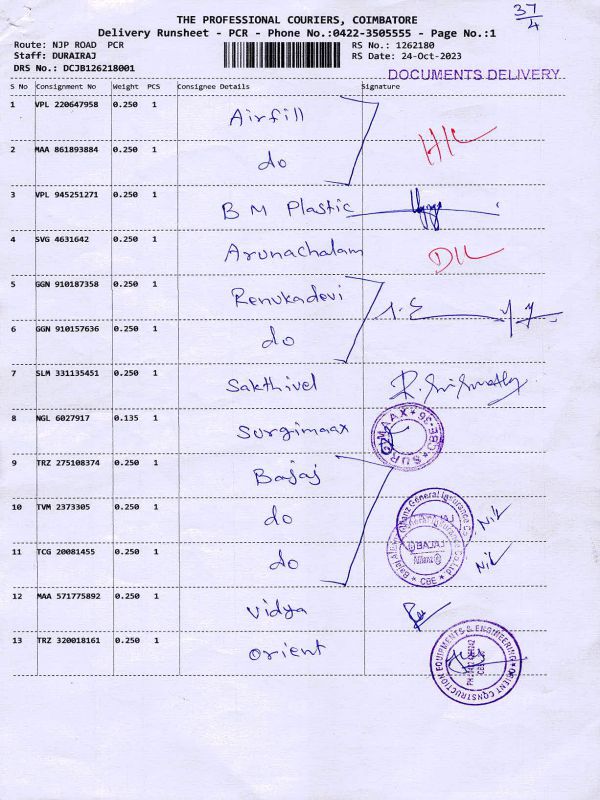 37/4
THE PROFESSIONAL COURIERS, COIMBATORE
Delivery Runsheet - PCR - Phone No.:0422-3505555 - Page No.:1
Route: NJP ROAD PCR RS No.: 1262180
Staff: DURAIRAJ RS Date: 24-Oct-2023
DRS No.: DCJB126218001
DOCUMENTS DELIVERY
S No Consignment No Weight PCS Consignee Details Signature
1 VPL 220647958 0.250 1 Airfill
2 MAA 861893884 0.250 1 do
3 VPL 945251271 0.250 1 B M Plastic
4 SVG 4631642 0.250 1 Arunachalam
5 GGN 910187358 0.250 1 Renukadevi
6 GGN 910157636 0.250 1 do
7 SLM 331135451 0.250 1 Sakthivel
8 NGL 6027917 0.135 1 Surgimaax
SURGIMAAX * CBE-36 *
9 TRZ 275108374 0.250 1 Bajaj
10 TVM 2373305 0.250 1 do
11 TCG 20081455 0.250 1 do
Bajaj Allianz General Insurance Co. Ltd * CBE *
BAJAJ
Allianz
12 MAA 571775892 0.250 1 Vidya
13 TRZ 320018161 0.250 1 Orient
ORIENT CONSTRUCTION EQUIPMENTS & ENGINEERING